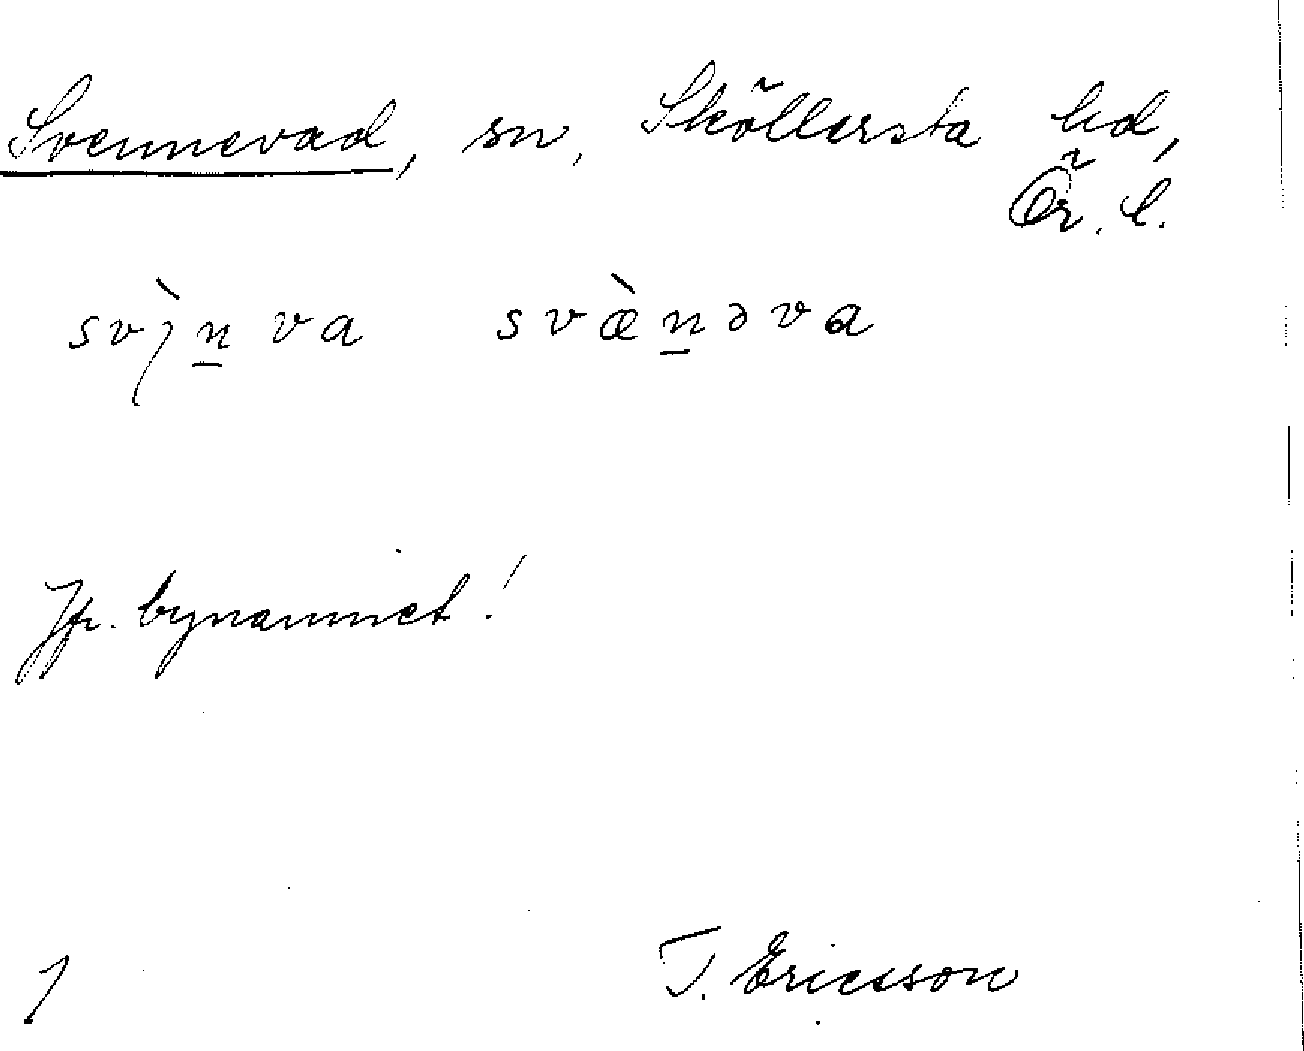 Svennevad, sn, Sköllersta hd,
Ör. l.
svæ̀n̲əva
Jfr. bynamnet!
1
T. Ericsson